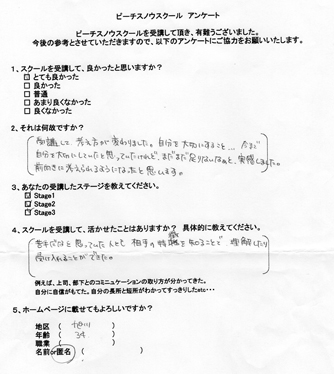 ピーチスノウスクール　アンケート
ピーチスノウスクールを受講して頂き、有難うございました。
今後の参考とさせていただきますので、以下のアンケートにご協力をお願いいたします。
1、スクールを受講して、良かったと思いますか？
とても良かった
良かった
普通
あまり良くなかった
良くなかった
2、それは何故ですか？
受講して、考え方が変わりました。自分を大切にすること… 今まで
自分を大切にしていたと思っていたけれど、まだまだ足りないなぁと、実感しました。
前向きに考えられるようになったと思います。
3、あなたの受講したステージを教えてください。
Stage1
Stage2
Stage3
4、スクールを受講して、活かせたことはありますか？　具体的に教えてください。
苦手だなと思っていた人とも 相手の特徴を知ることで、理解したり
受け入れることができた。
例えば、上司、部下とのコミュニケーションの取り方が分かってきた。
自分に自信がもてた。自分の長所と短所がわかってすっきりしたetc・・・
5、ホームページに載せてもよろしいですか？
地区　（　旭川　）
年齢　（　34　）
職業　（　）
名前or匿名　（　）